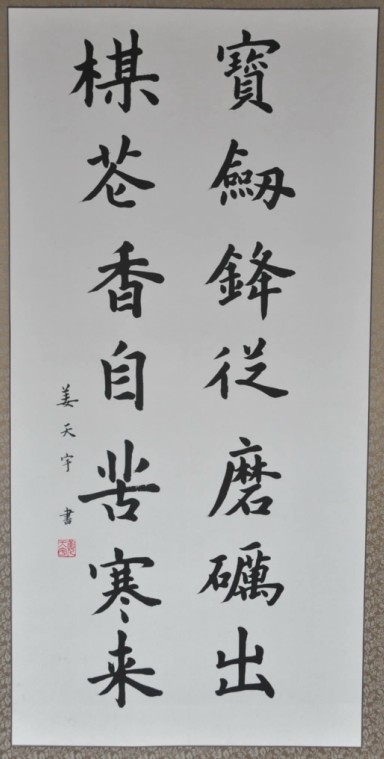 寶劔鋒従磨礪出
楳花香自苦寒来
姜天宇 書